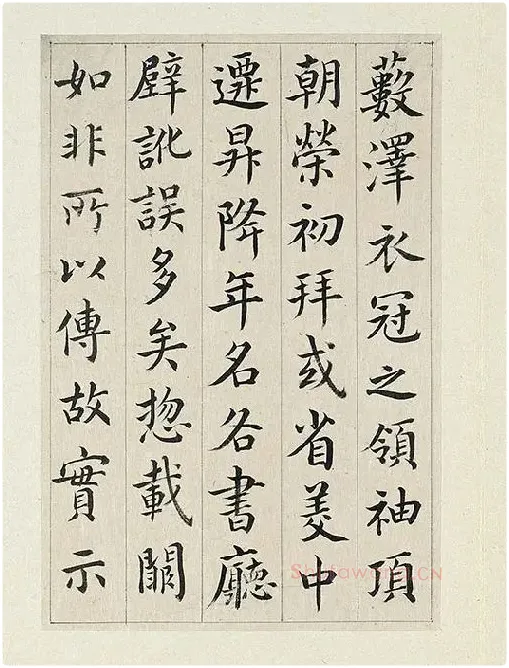 藪澤衣冠之領袖頂
朝榮初拜或省美中
遷昇降年名各書廳
壁訛誤多矣惣載闕
如非所以傳故實示